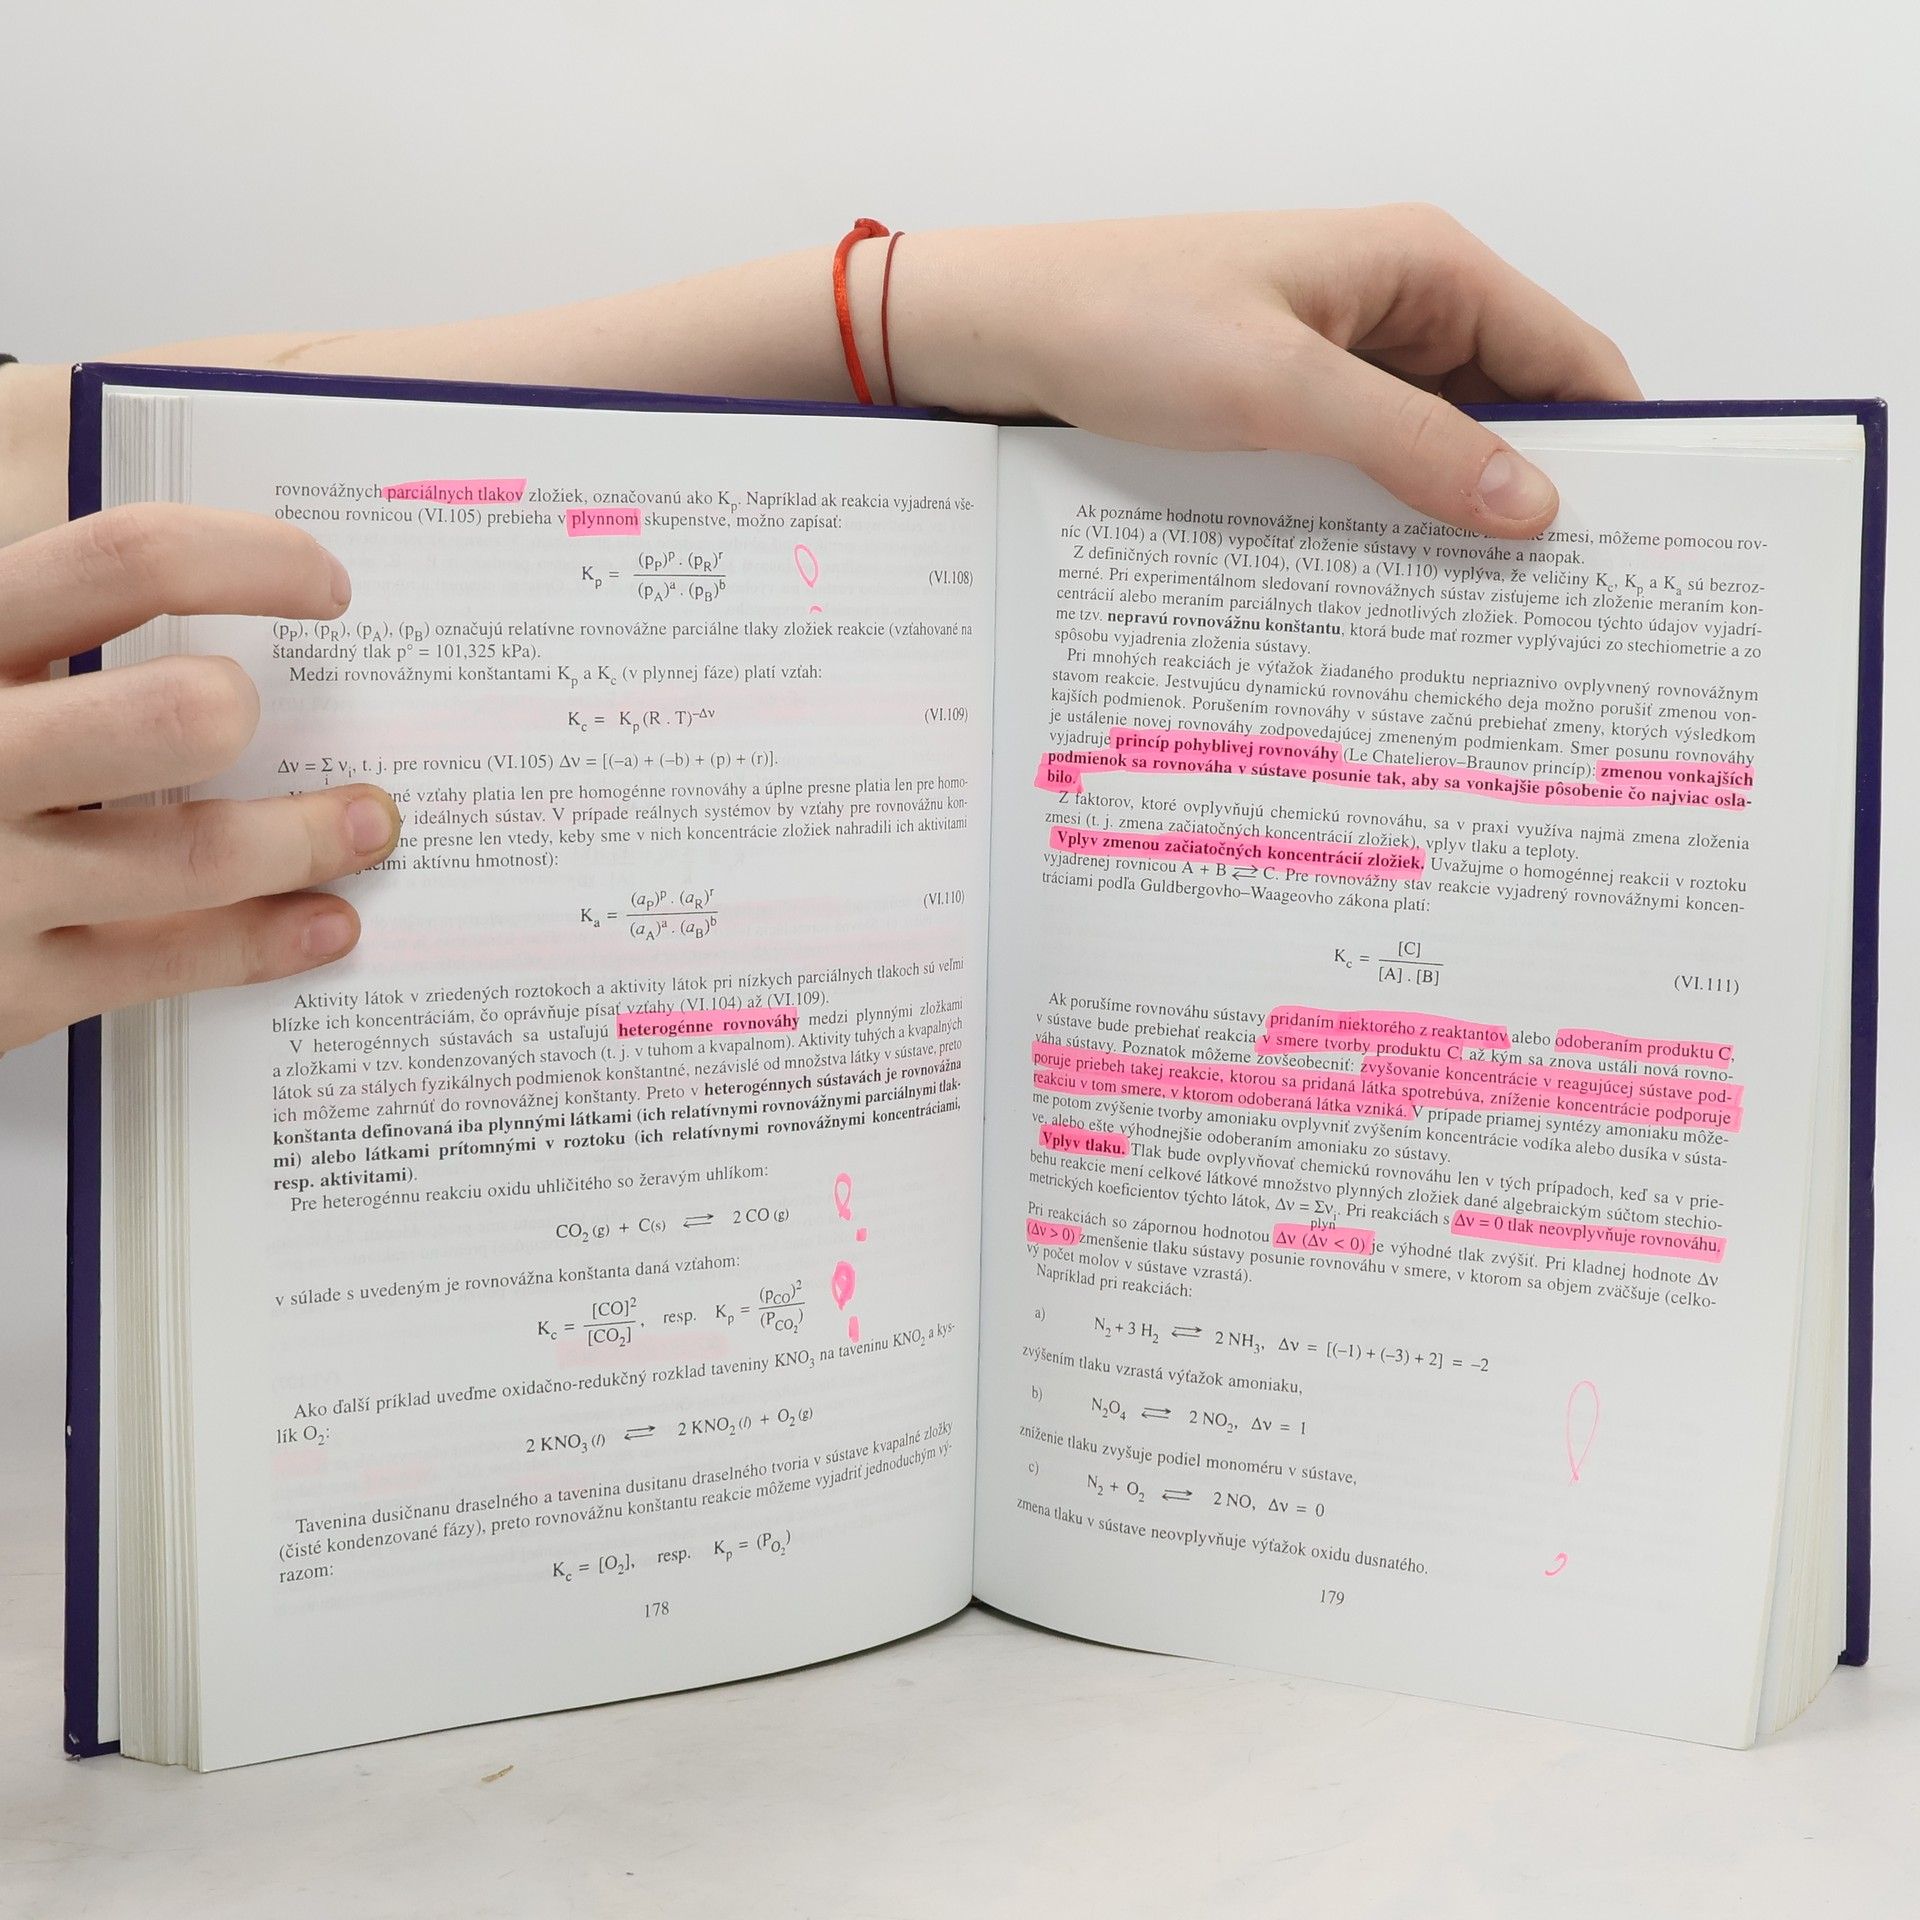 rovnovážnych parciálnych tlakov zložiek, označovanú ako Kp. Napríklad ak reakcia vyjadrená vše-
obecnou rovnicou (VI.105) prebieha v plynnom skupenstve, možno zapísať:
Kp = (pP)^p . (pR)^r / (pA)^a . (pB)^b (VI.108)
(pP), (pR), (pA), (pB) označujú relatívne rovnovážne parciálne tlaky zložiek reakcie (vzťahované na
štandardný tlak p° = 101,325 kPa).
Medzi rovnovážnymi konštantami Kp a Kc (v plynnej fáze) platí vzťah:
Kc = Kp (R . T)^–Δν (VI.109)
Δν = Σ νi, t. j. pre rovnicu (VI.105) Δν = [(–a) + (–b) + (p) + (r)].
i
né vzťahy platia len pre homogénne rovnováhy a úplne presne platia len pre homo-
y ideálnych sústav. V prípade reálnych systémov by vzťahy pre rovnovážnu kon-
ne presne len vtedy, keby sme v nich koncentrácie zložiek nahradili ich aktivitami
mi aktívnu hmotnosť):
Ka = (aP)^p . (aR)^r / (aA)^a . (aB)^b (VI.110)
Aktivity látok v zriedených roztokoch a aktivity látok pri nízkych parciálnych tlakoch sú veľmi
blízke ich koncentráciám, čo oprávňuje písať vzťahy (VI.104) až (VI.109).
V heterogénnych sústavách sa ustaľujú heterogénne rovnováhy medzi plynnými zložkami
a zložkami v tzv. kondenzovaných stavoch (t. j. v tuhom a kvapalnom). Aktivity tuhých a kvapalných
látok sú za stálych fyzikálnych podmienok konštantné, nezávislé od množstva látky v sústave, preto
ich môžeme zahrnúť do rovnovážnej konštanty. Preto v heterogénnych sústavách je rovnovážna
konštanta definovaná iba plynnými látkami (ich relatívnymi rovnovážnymi parciálnymi tlak-
mi) alebo látkami prítomnými v roztoku (ich relatívnymi rovnovážnymi koncentráciami,
resp. aktivitami).
Pre heterogénnu reakciu oxidu uhličitého so žeravým uhlíkom:
CO2 (g) + C(s) ⇄ 2 CO (g)
v súlade s uvedeným je rovnovážna konštanta daná vzťahom:
Kc = [CO]² / [CO2] , resp. Kp = (pCO)² / (PCO2)
Ako ďalší príklad uveďme oxidačno-redukčný rozklad taveniny KNO3 na taveninu KNO2 a kys-
lík O2:
2 KNO3 (l) ⇄ 2 KNO2 (l) + O2 (g)
Tavenina dusičnanu draselného a tavenina dusitanu draselného tvoria v sústave kvapalné zložky
(čisté kondenzované fázy), preto rovnovážnu konštantu reakcie môžeme vyjadriť jednoduchým vý-
razom:
Kc = [O2], resp. Kp = (PO2)
178
Ak poznáme hodnotu rovnovážnej konštanty a zmesi, môžeme pomocou rov-
níc (VI.104) a (VI.108) vypočítať zloženie sústavy v rovnováhe a naopak.
Z definičných rovníc (VI.104), (VI.108) a (VI.110) vyplýva, že veličiny Kc, Kp a Ka sú bezroz-
merné. Pri experimentálnom sledovaní rovnovážnych sústav zisťujeme ich zloženie meraním kon-
centrácií alebo meraním parciálnych tlakov jednotlivých zložiek. Pomocou týchto údajov vyjadrí-
me tzv. nepravú rovnovážnu konštantu, ktorá bude mať rozmer vyplývajúci zo stechiometrie a zo
spôsobu vyjadrenia zloženia sústavy.
Pri mnohých reakciách je výťažok žiadaného produktu nepriaznivo ovplyvnený rovnovážnym
stavom reakcie. Jestvujúcu dynamickú rovnováhu chemického deja možno porušiť zmenou von-
kajších podmienok. Porušením rovnováhy v sústave začnú prebiehať zmeny, ktorých výsledkom
je ustálenie novej rovnováhy zodpovedajúcej zmeneným podmienkam. Smer posunu rovnováhy
vyjadruje princíp pohyblivej rovnováhy (Le Chatelierov–Braunov princíp): zmenou vonkajších
podmienok sa rovnováha v sústave posunie tak, aby sa vonkajšie pôsobenie čo najviac osla-
bilo.
Z faktorov, ktoré ovplyvňujú chemickú rovnováhu, sa v praxi využíva najmä zmena zloženia
zmesi (t. j. zmena začiatočných koncentrácií zložiek), vplyv tlaku a teploty.
Vplyv zmenou začiatočných koncentrácií zložiek. Uvažujme o homogénnej reakcii v roztoku
vyjadrenej rovnicou A + B ⇄ C. Pre rovnovážny stav reakcie vyjadrený rovnovážnymi koncen-
tráciami podľa Guldbergovho–Waageovho zákona platí:
Kc = [C] / [A] . [B] (VI.111)
Ak porušíme rovnováhu sústavy pridaním niektorého z reaktantov alebo odoberaním produktu C,
v sústave bude prebiehať reakcia v smere tvorby produktu C, až kým sa znova ustáli nová rovno-
váha sústavy. Poznatok môžeme zovšeobecniť: zvyšovanie koncentrácie v reagujúcej sústave pod-
poruje priebeh takej reakcie, ktorou sa pridaná látka spotrebúva, zníženie koncentrácie podporuje
reakciu v tom smere, v ktorom odoberaná látka vzniká. V prípade priamej syntézy amoniaku môže-
me potom zvýšenie tvorby amoniaku ovplyvniť zvýšením koncentrácie vodíka alebo dusíka v sústa-
ve, alebo ešte výhodnejšie odoberaním amoniaku zo sústavy.
Vplyv tlaku. Tlak bude ovplyvňovať chemickú rovnováhu len v tých prípadoch, keď sa v prie-
behu reakcie mení celkové látkové množstvo plynných zložiek dané algebraickým súčtom stechio-
metrických koeficientov týchto látok, Δν = Σνi. Pri reakciách s Δν = 0 tlak neovplyvňuje rovnováhu.
plyn
Pri reakciách so zápornou hodnotou Δν (Δν < 0) je výhodné tlak zvýšiť. Pri kladnej hodnote Δν
(Δν > 0) zmenšenie tlaku sústavy posunie rovnováhu v smere, v ktorom sa objem zväčšuje (celko-
vý počet molov v sústave vzrastá).
Napríklad pri reakciách:
a) N2 + 3 H2 ⇄ 2 NH3, Δν = [(–1) + (–3) + 2] = –2
zvýšením tlaku vzrastá výťažok amoniaku,
b) N2O4 ⇄ 2 NO2, Δν = 1
zníženie tlaku zvyšuje podiel monoméru v sústave,
c) N2 + O2 ⇄ 2 NO, Δν = 0
zmena tlaku v sústave neovplyvňuje výťažok oxidu dusnatého.
179